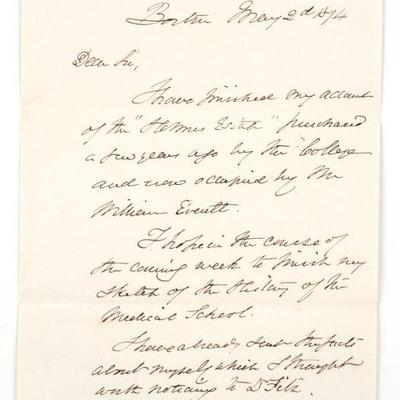 Boston May 2d 1874
Dear Sir,
I have finished my account
of the "Holmes Estate" purchased
a few years ago by the "College"
and now occupied by Mr
William Everett.
I hope in the course of
the coming week to finish my
sketch of the History of the
Medical School.
I have already sent the facts
about myself which I thought
worth noticing to Dr Fitz.